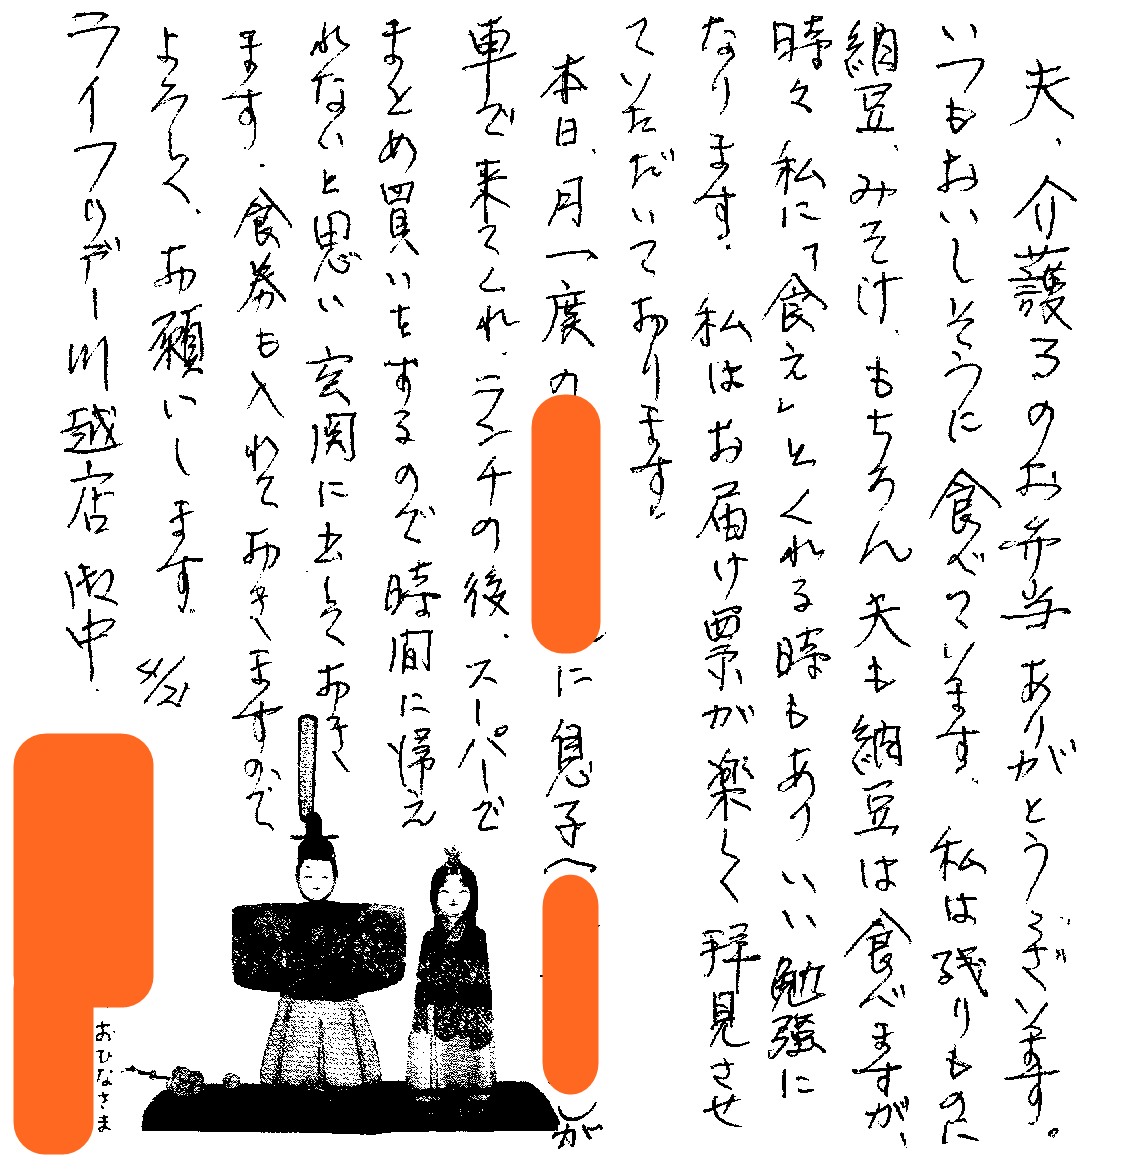 夫、介護るのお弁当ありがとうございます。
いつもおいしそうに食べています。私は残りものに
納豆、みそ汁、もちろん夫も納豆は食べますが、
時々私に「食え」とくれる時もあり いい勉強に
なります。私はお届け票が楽しく拝見させ
ていただいております。
本日、月一度の
に息子へ
が
車で来てくれ、ランチの後、スーパーで
まとめ買いをするので時間に帰え
れないと思い玄関に出しておき
ます。食券も入れておきますので
よろしく、お願いします。 4/21
ライフリデー川越店 御中.
おひなさま